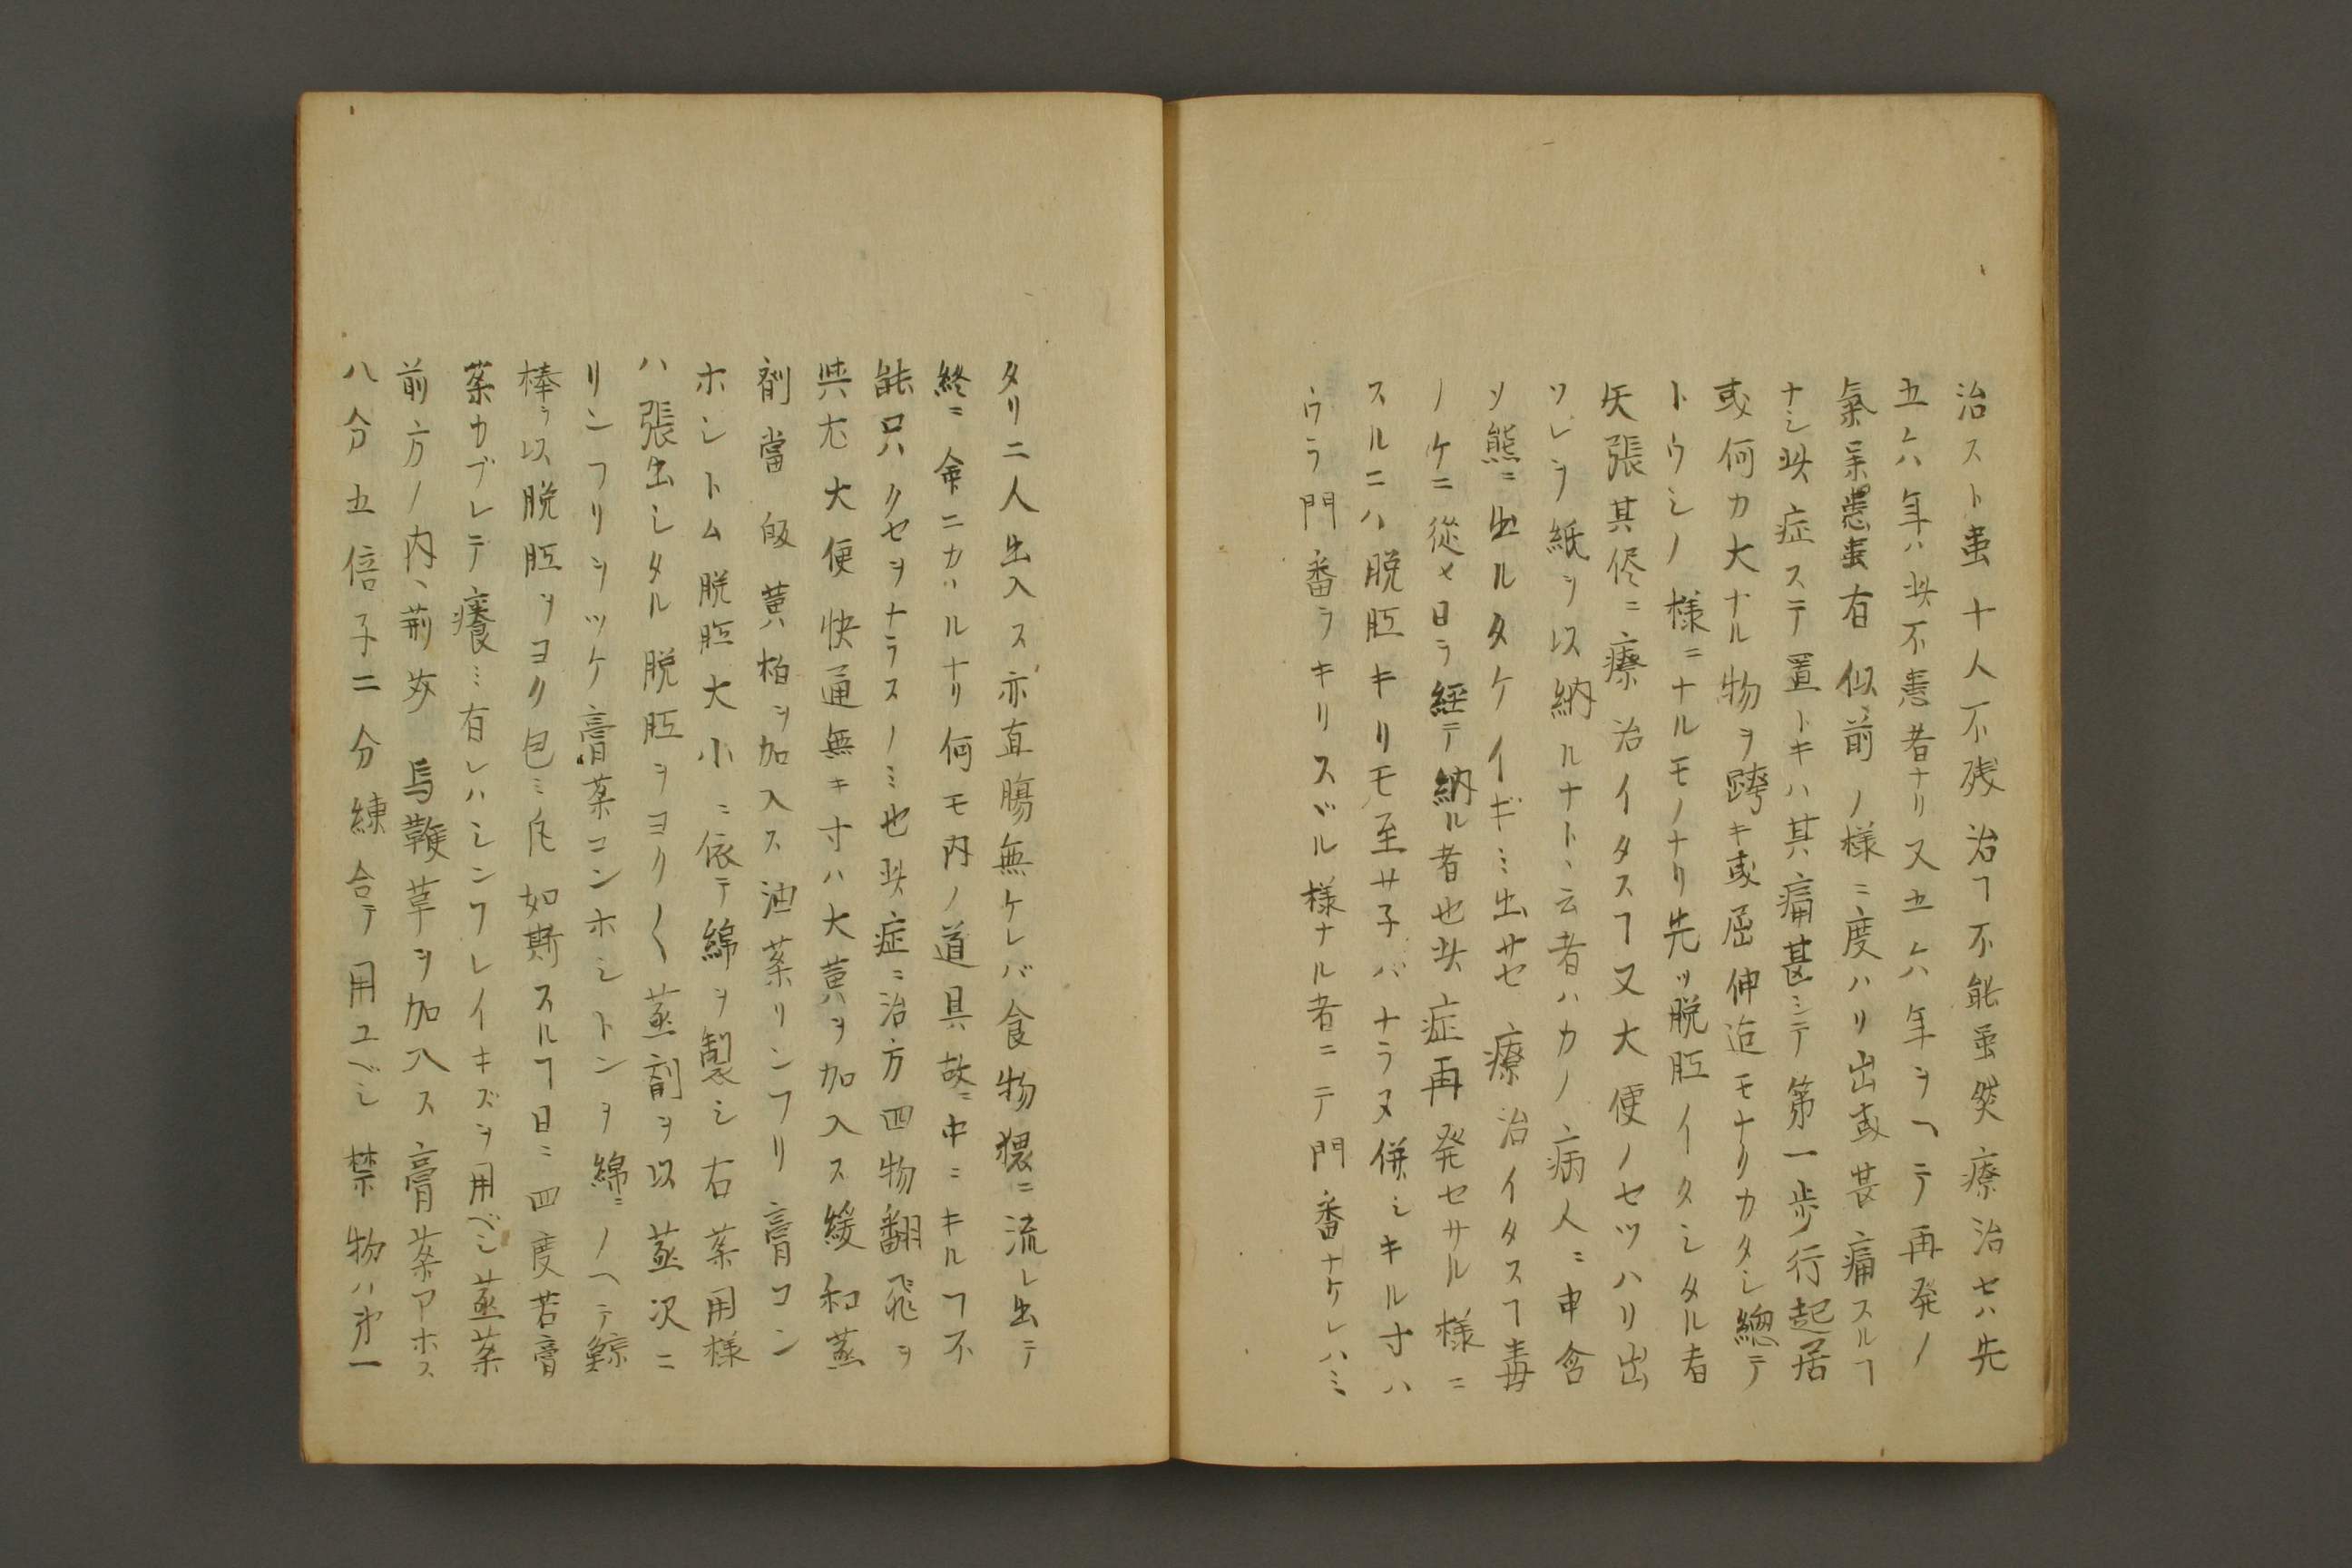 治スト虽十人不残治ヿ不能虽然療治セハ先
五六年ハ此不患者ナリ又五六年ヲヘテ再発ノ
氣㒵患虽有似前ノ様ニ度ハリ出或甚痛スルヿ
ナシ此症ステ置トキハ其痛甚シテ第一歩行起居
或何カ大ナル物ヲ跨キ或屈伸迄モナリカタシ總テ
トウシノ様ニナルモノナリ先ツ脱肛イタシタル者
矢張其侭ニ療治イタスヿ又大便ノセツハリ出
ソレヲ紙ヲ以納ルナト、云者ハカノ病人ニ申含
ソ熊ニ出ルタケイギミ出サセ療治イタスヿ毒
ノケニ從メ日ラ経テ納ル者也此症再発セサル様ニ
スルニハ脱肛キリモ至サ子バナラヌ併シキル寸ハ
ウラ門番ラキリスヅル様ナル者ニテ門番ナケレハミ
タリニ人出入ス亦直腸無ケレバ食物猥ニ流レ出テ
終ニ命ニカハルナリ何モ内ノ道具故ニ中ニキルヿ不
能只ハクセヲナラスノミ也此症ニ治方四物翻飛ヲ
與尤大便快通無キ寸ハ大黄ヲ加入ス緩和蒸
劑當皈黄柏ヲ加入ス油薬リンフリ膏コン
ホントム脱肛大小ニ依テ綿ヲ製シ右薬用様
ハ張出シタル脱肛ヲヨク〱蒸劑ヲ以蒸次ニ
リンフリヲツケ膏薬コンホントンヲ綿ニノヘテ鯨
棒ラ以脱肛ヲヨク包ミ凡如斯スルヿ日ニ四度若膏
薬カブレテ癢ミ有レハシンフレイキズヲ用ベシ蒸薬
前方ノ内、荊芥馬鞭草ヲ加入ス膏薬アホス
八分五倍子二分練合テ用ユベシ禁物ハ第一